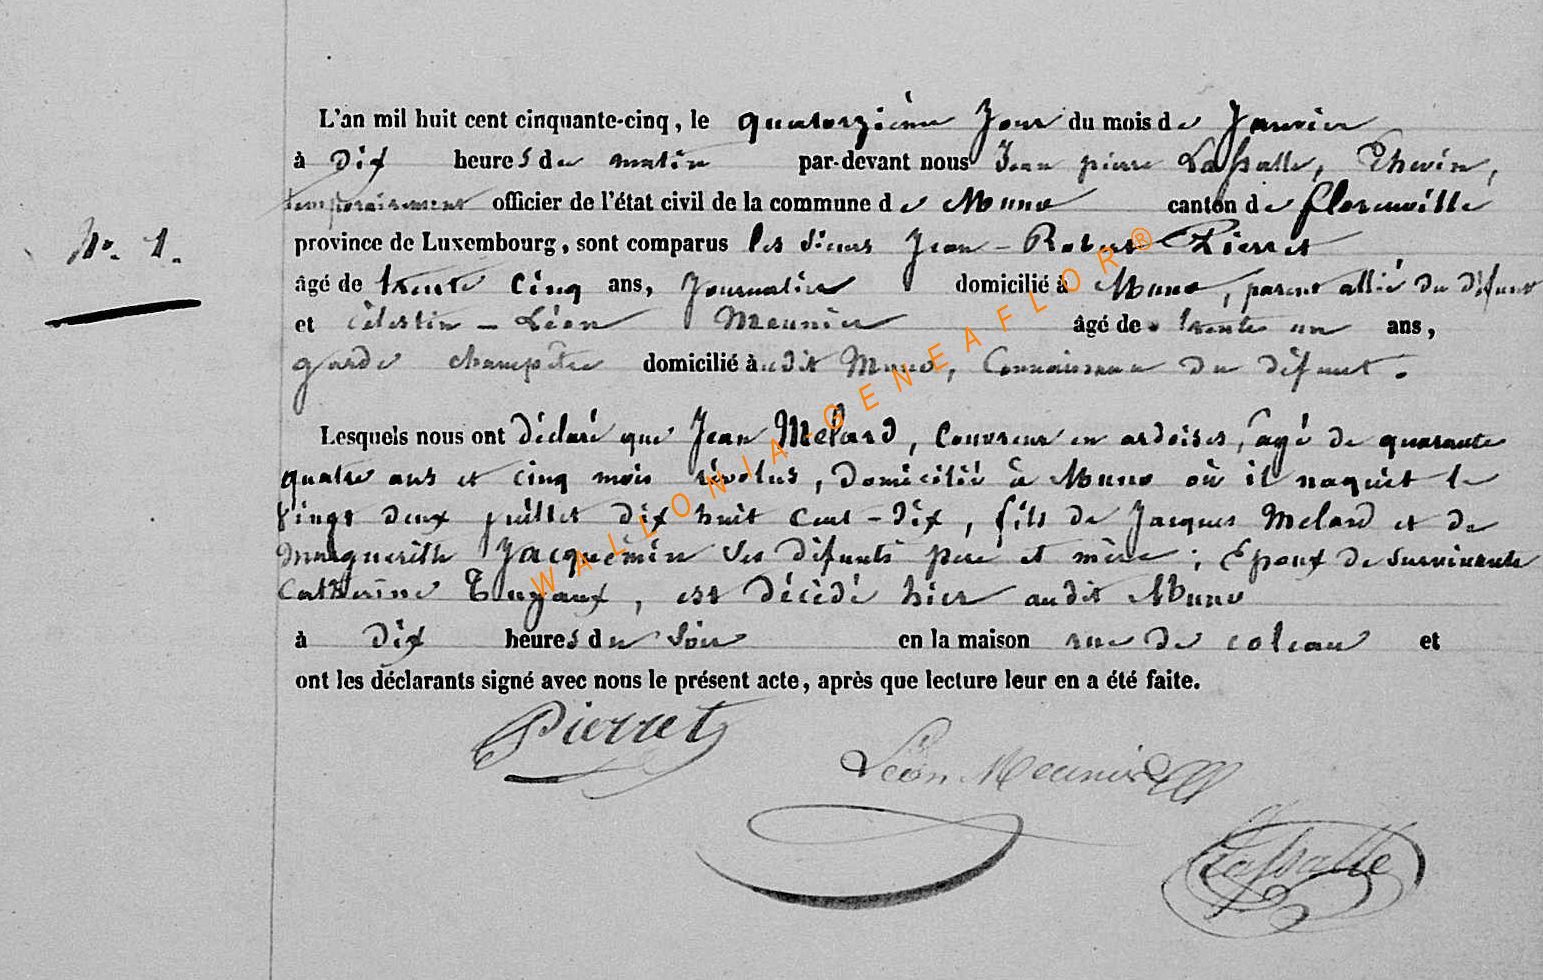 L'an mil huit cent cinquante-cinq, le quatorzième Jour du mois de Janvier
à Dix heures du matin par-devant nous Jean pierre Lassalle, Echevin,
temporairement officier de l'état civil de la commune de Muno canton de florenville
province de Luxembourg, sont comparus les Sieurs Jean-Robert Pierret
N°. 1.
âgé de trente cinq ans, Journalier domicilié à Muno, parent allié du défunt
et Célestin-Léon Meunier âgé de trente un ans,
garde champêtre domicilié audit Muno, Connaisseur du défunt.
Lesquels nous ont déclaré que Jean Melard, Couvreur en ardoises, agé de quarante
quatre ans et cinq mois révolus, Domicilié à Muno où il naquit le
vingt deux juillet dix huit cent-dix, fils de Jacques Melard et de
Marguerith Jacquemin ses défunts père et mère; Epoux de Survivante
Catherine Tuyaux, est décédé hier audit Muno
à Dix heures du Soir en la maison rue de et
ont les déclarants signé avec nous le présent acte, après que lecture leur en a été faite.
Pierret
Léon Meunier
Lassalle
WALLONIA-GENEAFLOR®